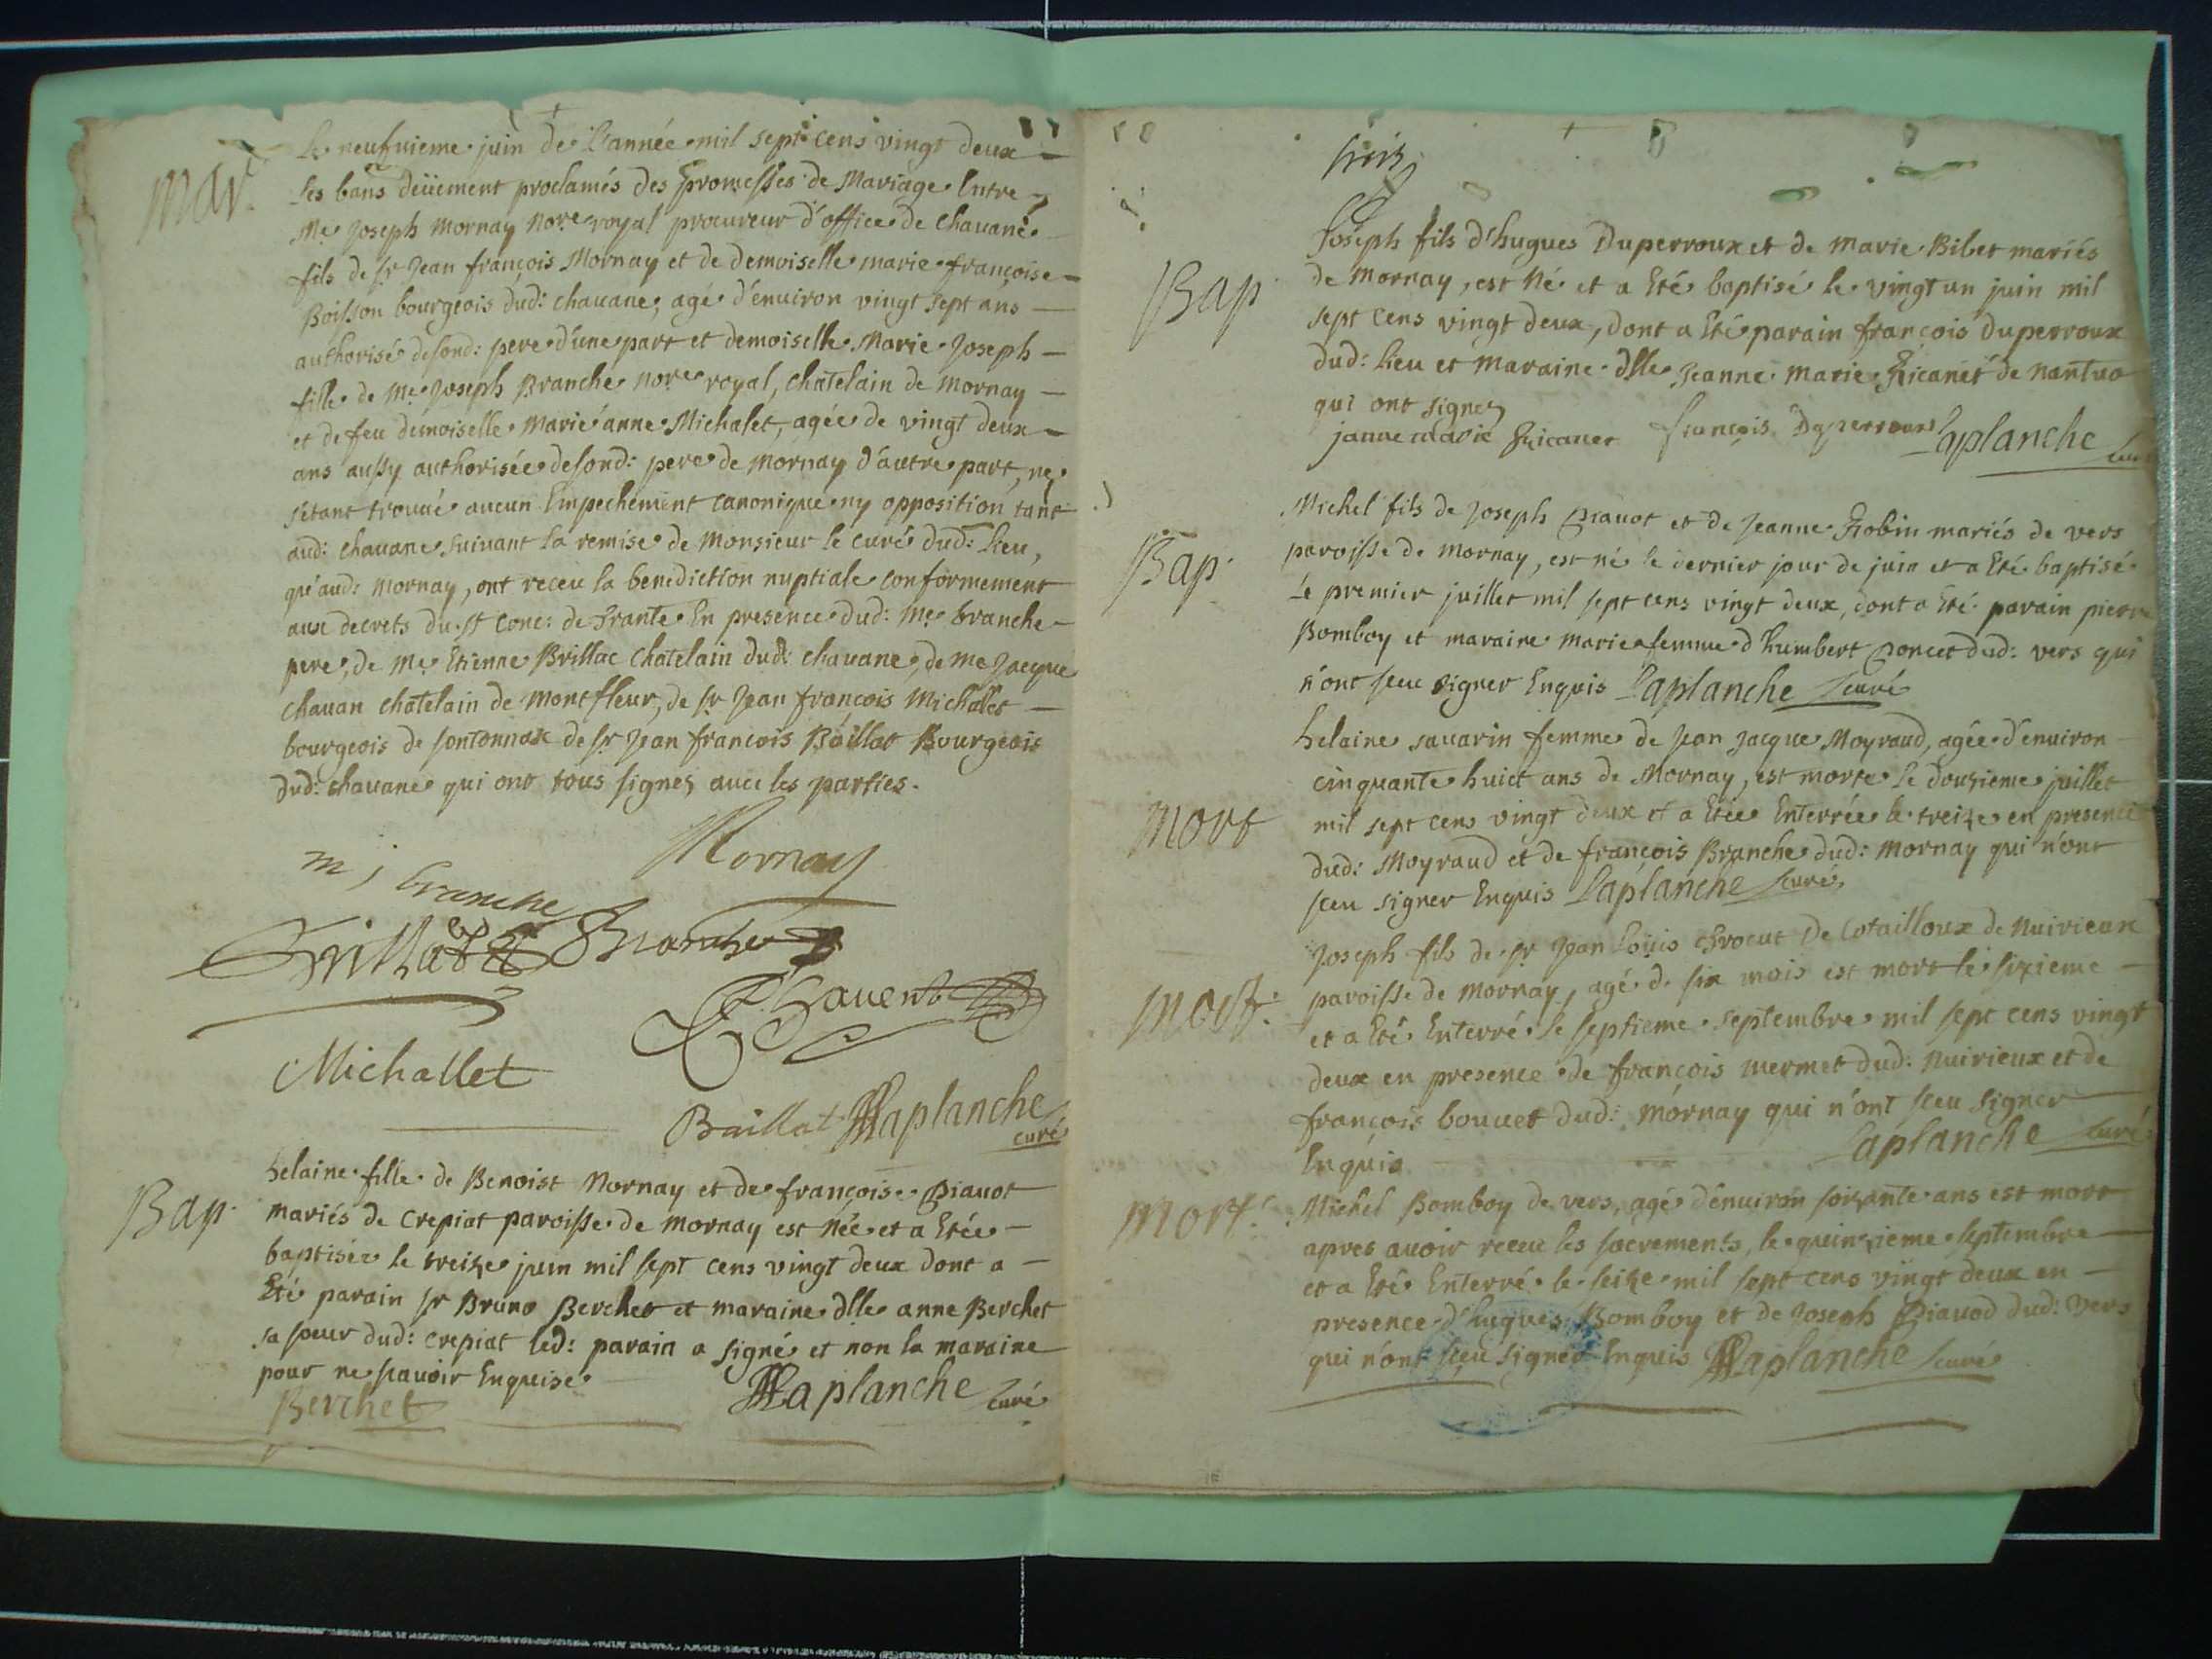 Mar.
Le neufuieme juin de l'année mil sept cens vingt deux
les bans deüement proclamés des promesses de Mariage Entre
Me Joseph Mornay nore royal procureur d'office de Chauane
fils de sr Jean françois Mornay et de demoiselle marie françoise
Boisson bourgeois dud: chauane, agé d'enuiron vingt sept ans
authorisé desond: pere d'une part et demoiselle Marie Joseph
fille de Me Joseph Branche nore royal, chatelain de Mornay
et de feu demoiselle Marie anne Michalet, agée de vingt deux
ans aussy authorisée desond: pere de Mornay d'autre part, ne
s'etant trouué aucun Empechement canonique ny opposition tant
aud: chauane suiuant la remise de Monsieur le curé dud: lieu,
qu'aud: Mornay, ont receu la benediction nuptiale conformement
aux decrets du st conc: de Trante En presence dud: Me branche
pere, de Me Etienne Brillac chatelain dud: chauane, de me Jacque
chauan chatelain de Montfleur, de sr Jean françois Michalet
bourgeois de sontonnax de sr Jean françois Baillat Bourgeois
dud: chauane qui ont tous signez auec les parties.
Mornay
m j branche
Brillat Branche
Chauent
Michallet
Baillat Laplanche
curé
Bap.
helaine fille de Benoist Mornay et de françoise Piauot
mariés de Crepiat paroisse de Mornay est née et a Etée
baptisée le treize juin mil sept cens vingt deux dont a
Eté parain sr Bruno Berchet et maraine dlle anne Berchet
sa soeur dud: crepiat led: parain a signé et non la maraine
pour ne scauoir Enquise
Berchet Laplanche curé
Bap.
Joseph fils d'hugues Duperroux et de Marie Bibet mariés
de Mornay, est Né et a Eté baptisé le vingt un juin mil
sept cens vingt deux, dont a Eté parain françois Duperroux
dud: lieu et maraine dlle Jeanne Marie Ricanet de nantua
qui ont signez
janne marie Ricanet françois Duperroux Laplanche curé
Bap.
Michel fils de Joseph Piauot et de Jeanne Robin mariés de vers
paroisse de Mornay, est né le dernier jour de juin et a Eté baptisé
Le premier juillet mil sept cens vingt deux, dont a Eté parain pierre
Bomboy et maraine marie femme d'humbert Poncet dud: vers qui
n'ont sceu signer Enquis Laplanche curé
mort
helaine sauarin femme de Jean Jacque Moyraud, agée d'enuiron
cinquante huict ans de Mornay, est morte le douzieme juillet
mil sept cens vingt deux et a Etée Enterrée le treize en presence
dud: Moyraud et de françois Branche dud: Mornay qui n'ont
sceu signer Enquis Laplanche curé
mort.
Joseph fils de sr Jean Loüis de Cotailloux de Nuirieux
paroisse de Mornay, agé de six mois est mort le sixieme
et a Eté Enterré le septieme septembre mil sept cens vingt
deux en presence de françois mermet dud: Nuirieux et de
françois bouuet dud: Mornay qui n'ont sceu signer
Enquis Laplanche curé
mort.
Michel Bomboy de vers, agé d'enuiron soixante ans est mort
apres auoir receu les sacrements, le quinzieme septembre
et a Eté Enterré le seize mil sept cens vingt deux en
presence d'hugues Bomboy et de Joseph Piauod dud: vers
qui n'ont sceu signer Enquis Laplanche curé